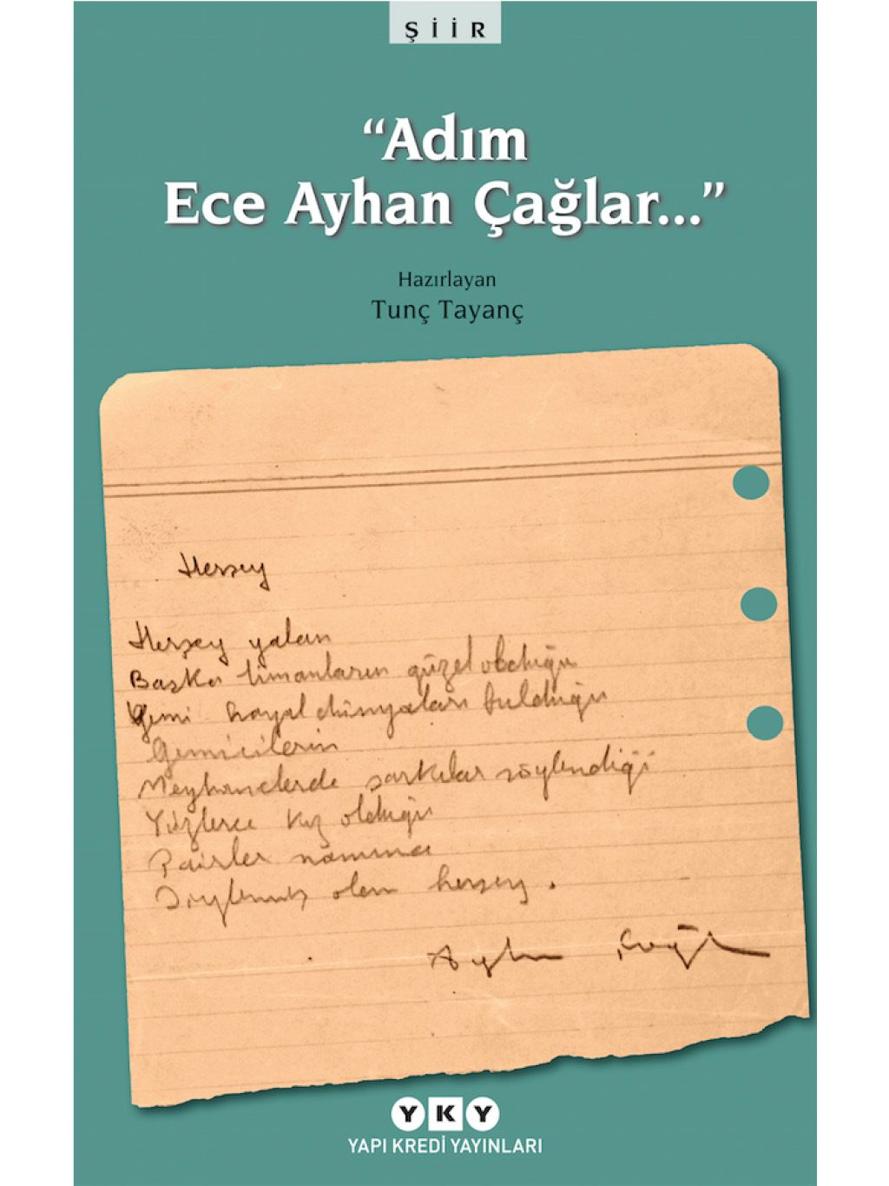 ŞİİR
“Adım
Ece Ayhan Çağlar...”
Hazırlayan
Tunç Tayanç
Herşey
Herşey yalan
Başka limanların güzel olduğu
Gemi hayal dünyaları bulduğu
Gemicilerin
Meyhanelerde şarkılar söylendiği
Yüzlerce kız olduğu
Şairler namına
Söylenmiş olan herşey.
Ayhan Çağlar
YKY
YAPI KREDİ YAYINLARI